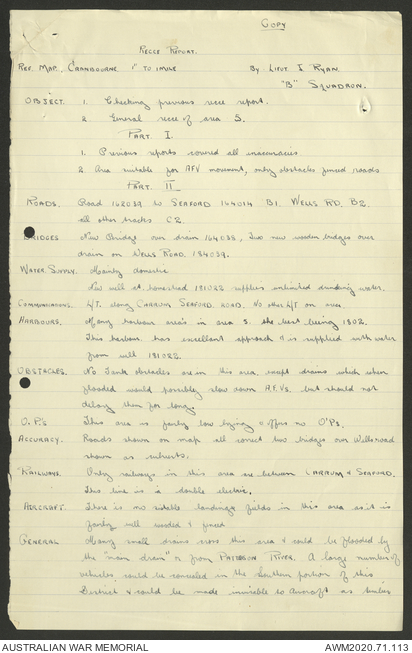 COPY
RECCE REPORT.
REF. MAP, CRANBOURNE 1" TO 1 MILE By LIEUT. I RYAN.
"B" SQUADRON.
OBJECT. 1. Checking previous recce report.
2. General recce of area S.
PART I
1. Previous reports covered all inaccuracies
2. Area suitable for AFV movement, only obstacles fenced roads
PART II
ROADS. Road 162039 to SEAFORD 164014 B1. WELLS RD. B2.
all other tracks C2.
BRIDGES New Bridge over drain 164035, Two new wooden bridges over
drain on WELLS ROAD. 184039.
WATER SUPPLY. Mainly domestic
New well at homestead 181022 supplies unlimited drinking water.
COMMUNICATIONS. L/T. along CARRUM SEAFORD ROAD. No other L/T on area.
HARBOURS. Many harbour areas in area S. the best being 1802.
This harbour has excellent approach & is supplied with water
from well 181022.
OBSTACLES. No Tank obstacles are in this area, except drains which when
flooded would possibly slow down A.F.V's. but should not
delay them for long.
O.P.'s This area is fairly low lying & offers no O'Ps.
ACCURACY. Roads shown on map all correct two bridges over Wells road
shown as culverts.
RAILWAYS. Only railways in this area are between CARRUM & SEAFORD.
This line is a double electric.
AIRCRAFT. There is no suitable landing fields in this area as it is
fairly well wooded & fenced
GENERAL Many small drains cross this area & could be flooded by
the "main drain" or from PATTERSON RIVER. A large number of
vehicles could be concealed in the Southern portion of this
District & could be made invisible to Aircraft as
AUSTRALIAN WAR MEMORIAL AWM2020.71.113